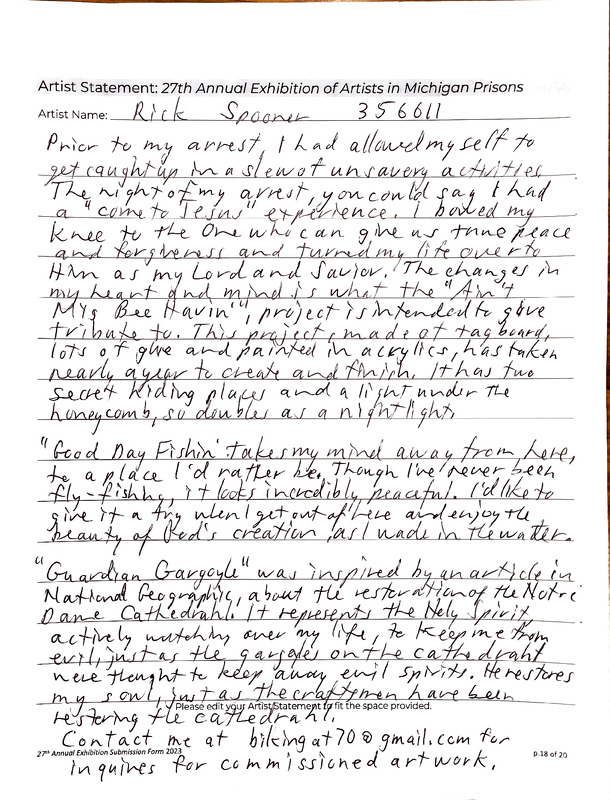 Artist Statement: 27th Annual Exhibition of Artists in Michigan Prisons
Artist Name: Rick Spooner 356611
Prior to my arrest, I had allowed myself to
get caught up in a slew of unsavory activities.
The night of my arrest, you could say I had
a "come to Jesus" experience. I bowed my
knee to the One who can give us true peace
and forgiveness and turned my life over to
Him as my Lord and Savior. The changes in
my heart and mind is what the "Ain't
Mis Bee Havin'", project is intended to give
tribute to. This project, made of tagboard,
lots of glue and painted in acrylics, has taken
nearly a year to create and finish. It has two
secret hiding places and a light under the
honeycomb, so doubles as a nightlight.
"Good Day Fishin' takes my mind away from here,
to a place I'd rather be. Though I've never been
fly-fishing, it looks incredibly peaceful. I'd like to
give it a try when I get out of here and enjoy the
beauty of God's creation as I wade in the water.
"Guardian Gargoyle" was inspired by an article in
National Geographic, about the restoration of the Notre
Dame Cathedrahl. It represents the Holy Spirit
actively watching over my life, to keep me from
evil, just as the gargoles on the cathedrahl
were thought to keep away evil spirits. He restores
my soul, just as the craftsmen have been
Please edit your Artist Statement to fit the space provided.
restoring the cathedrahl.
Contact me at biking at70@gmail.com for
27th Annual Exhibition Submission Form 2023 p.18 of 20
inquires for commissioned artwork.